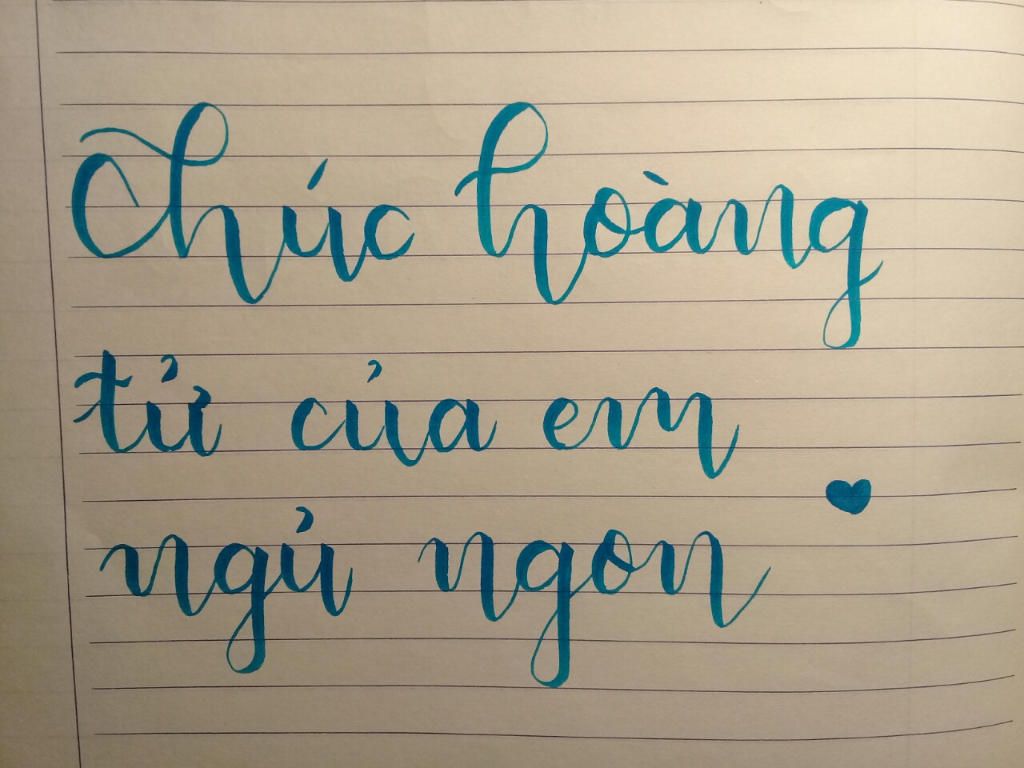 Chúc hoàng
tử của em
ngủ ngon